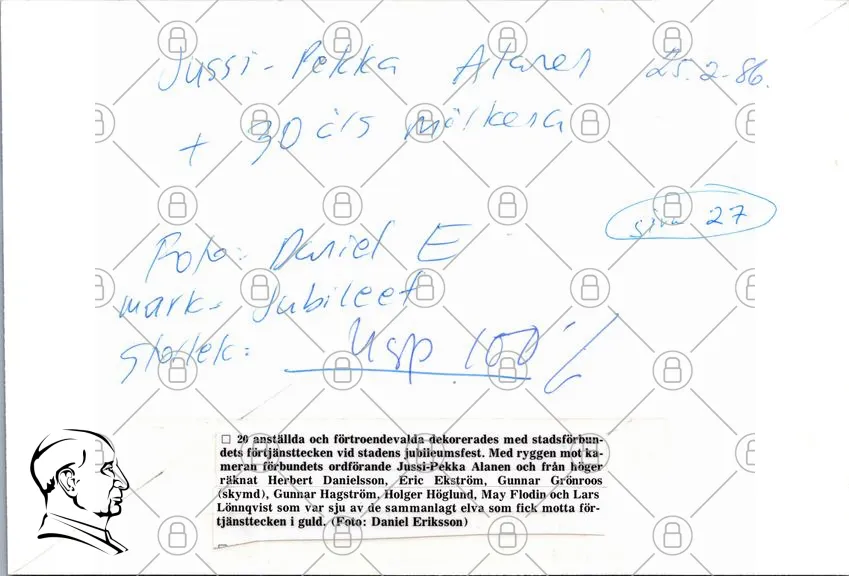 Jussi-Pekka Alanen 25.2-86.
+ 30 års märkena
sid 27
Foto: Daniel E
mark- Jubileet
storlek: 4sp 100%
☐ 20 anställda och förtroendevalda dekorerades med stadsförbun-
dets förtjänsttecken vid stadens jubileumsfest. Med ryggen mot ka-
meran förbundets ordförande Jussi-Pekka Alanen och från höger
räknat Herbert Danielsson, Eric Ekström, Gunnar Grönroos
(skymd), Gunnar Hagström, Holger Höglund, May Flodin och Lars
Lönnqvist som var sju av de sammanlagt elva som fick motta för-
tjänsttecken i guld. (Foto: Daniel Eriksson)